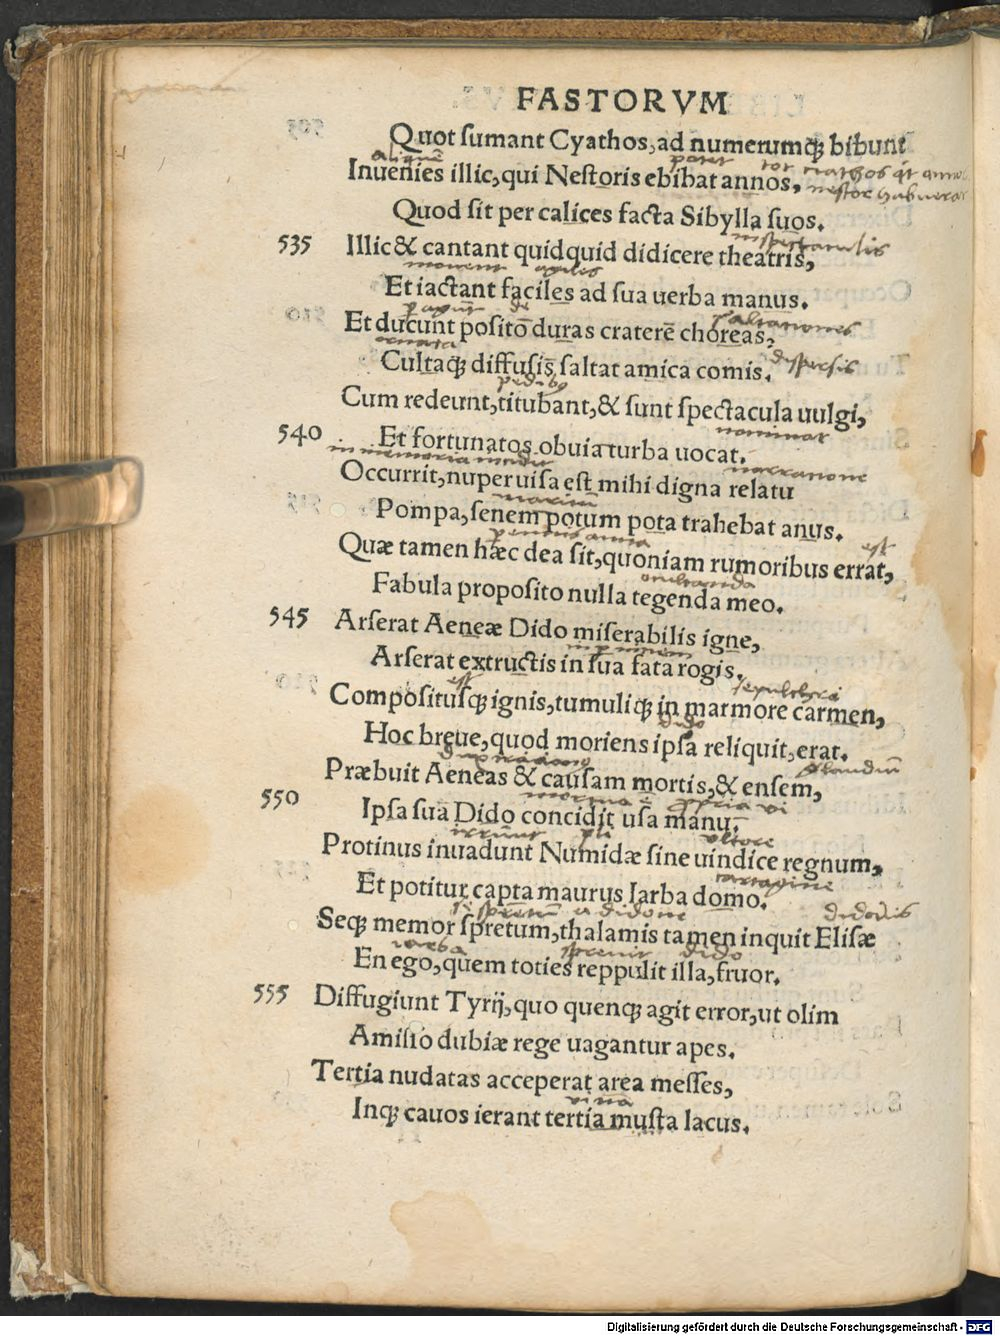 FASTORVM
Quot sumant Cyathos, ad numerumq; bibunt
aliquē potet tot ciathos q̄t annos
Inuenies illic, qui Nestoris ebibat annos, nestor habuerat
Quod sit per calices facta Sibylla suos.
in spectaculis
535 Illic & cantant quidquid didicere theatris,
mouent agiles
Et iactant faciles ad sua uerba manus.
de saltationes
Et ducunt posito duras craterē choreas,
ornata
Cultaq; diffusis saltat amica comis. dispersis
pedibꝰ
Cum redeunt, titubant, & sunt spectacula uulgi,
nominat
540 Et fortunatos obuia turba uocat.
in memoria narratione
Occurrit, nuper uisa est mihi digna relatu
Pompa, senem potum pota trahebat anus.
est
Quæ tamen hæc dea sit, quoniam rumoribus errat,
occultanda
Fabula proposito nulla tegenda meo.
545 Arserat Aeneæ Dido miserabilis igne,
Arserat extructis in sua fata rogis.
est sepulchri
Compositusq; ignis, tumuliq; in marmore carmen,
dido
Hoc breue, quod moriens ipsa reliquit, erat.
gladium
Præbuit Aeneas & causam mortis, & ensem,
ꝓpria vi
550 Ipsa sua Dido concidit usa manu.
irruunt vltore
Protinus inuadunt Numidæ sine uindice regnum,
cartagine
Et potitur capta maurus Iarba domo.
se spretū a didone didonis
Seq; memor spretum, thalamis tamen inquit Elisæ
iarba spreuit dido
En ego, quem toties reppulit illa, fruor.
555 Diffugiunt Tyrij, quo quenq; agit error, ut olim
Amisso dubiæ rege uagantur apes.
Tertia nudatas acceperat area messes,
vina
Inq; cauos ierant tertia musta lacus.
Digitalisierung gefördert durch die Deutsche Forschungsgemeinschaft - DFG